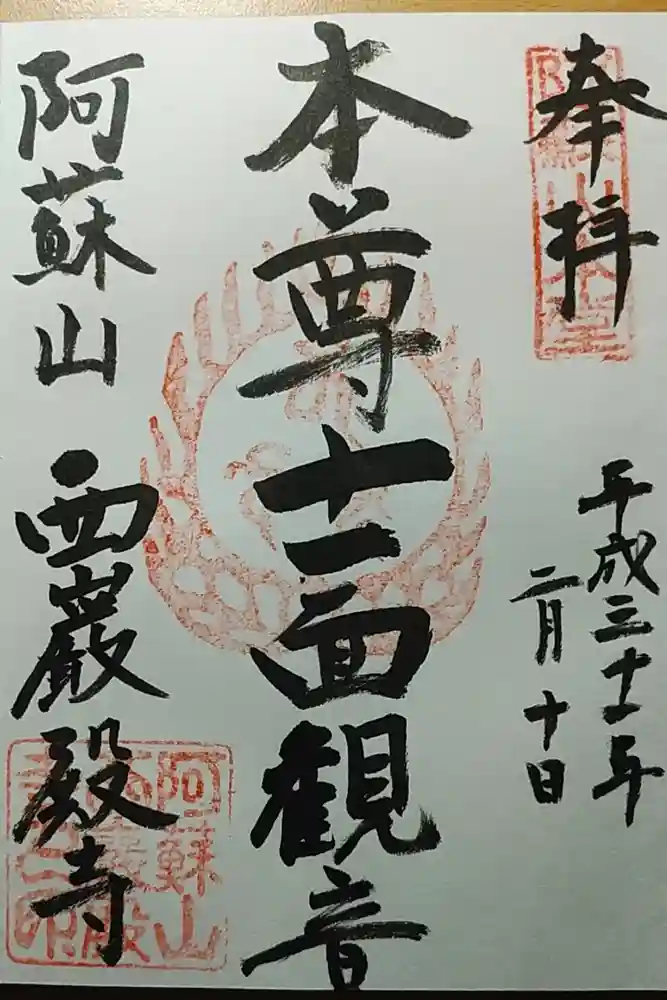 奉拝
平成三十一年
二月十日
本尊十一面観音
阿蘇山
西巌殿寺